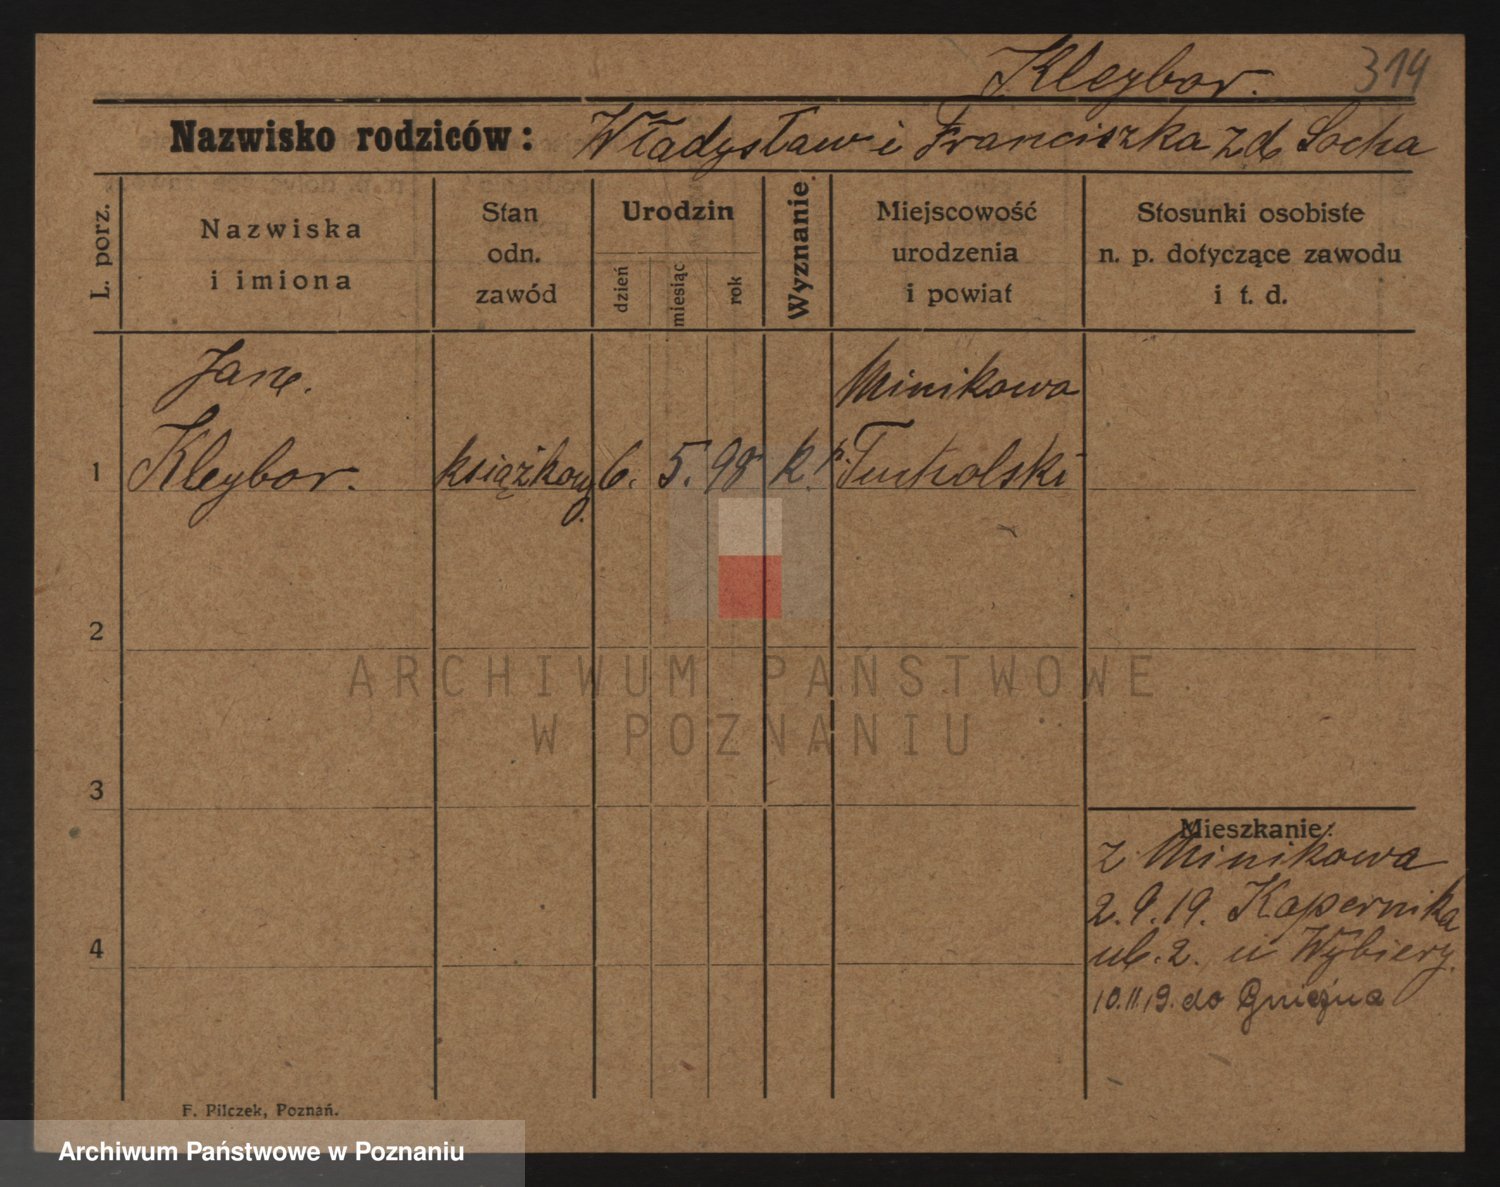 Kleybor. 314
Nazwisko rodziców: Władysław i Franciszka zd Socha
L. porz.
Nazwiska
i imiona
Stan
odn.
zawód
Urodzin
dzień
miesiąc
rok
Wyznanie.
Miejscowość
urodzenia
i powiat
Stosunki osobiste
n. p. dotyczące zawodu
i t. d.
Jane.
Minikowo
1 Kleybor. książkowy. 6. 5. 98 k. p. Tucholski
2
3
4
Mieszkanie:
z Minikowa
2.9.19. Kopernika
ul. 2. u Wybiery.
10.11.19. do Gniezna
F. Pilczek, Poznań.
ARCHIWUM PAŃSTWOWE
W POZNANIU
Archiwum Państwowe w Poznaniu